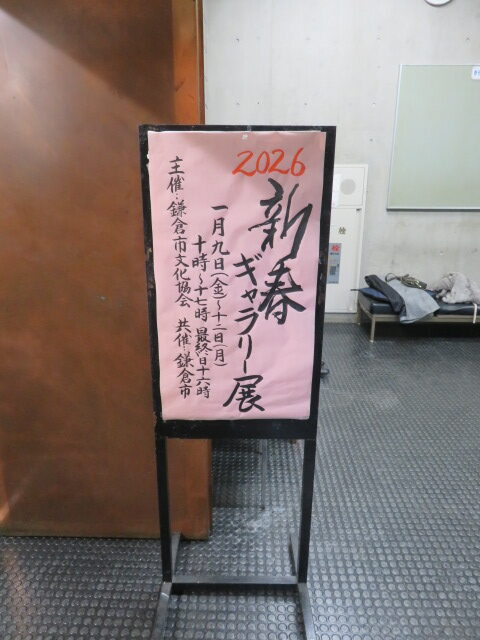 2026
新春ギャラリー展
一月九日(金)~十二日(月)
十時~十七時 最終日十六時
主催:鎌倉市文化協会 共催:鎌倉市